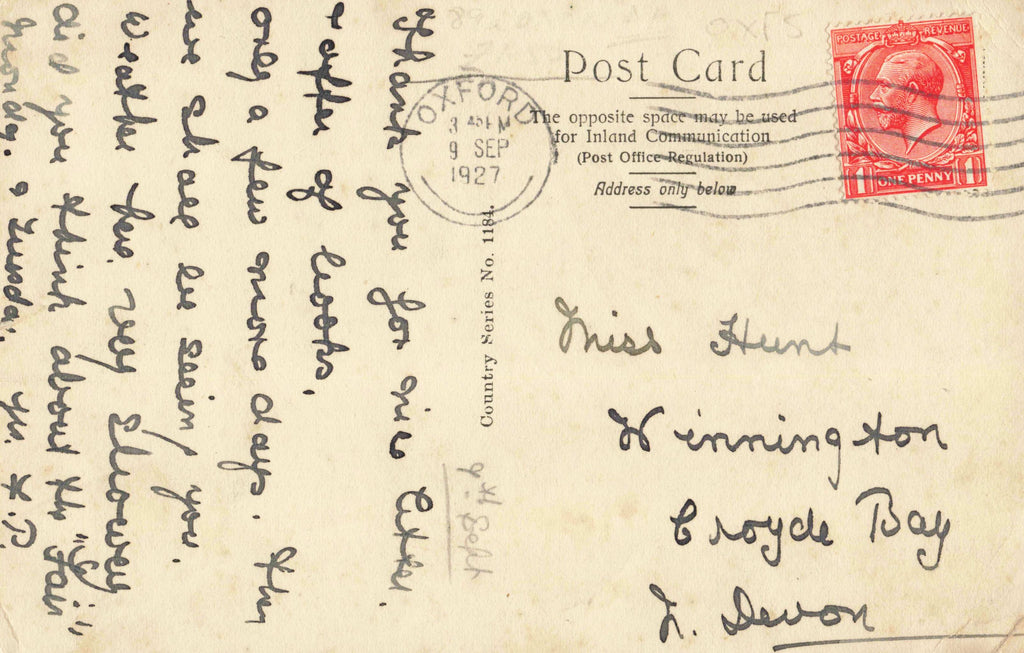 Thank you for nice letter
& offer of books,
only a few more days. then
we shall be seeing you.
Weather here very showery
did you think about the "Fair"
Monday & Tuesday.
9th Sept
Country Series No. 1184.
OXFORD
9 SEP
1927
Post Card
The opposite space may be used
for Inland Communication
(Post Office Regulation)
Address only below
POSTAGE REVENUE
1 ONE PENNY 1
Miss Hunt
Winnington
Croyde Bay
N. Devon